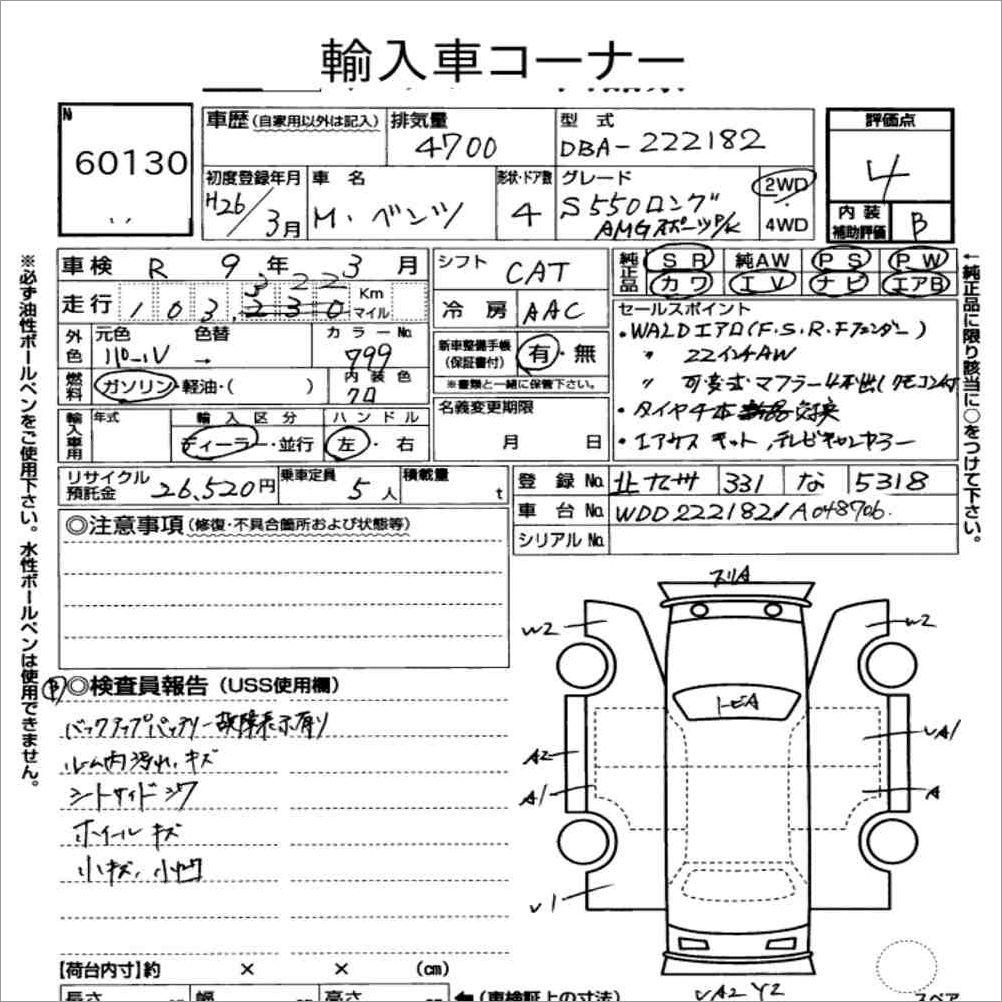 輸入車コーナー
№
60130
車歴 (自家用以外は記入)
排気量
4700
型式
DBA-222182
評価点
4
内装
補助評価
B
初度登録年月
H26/3月
車名
M・ベンツ
形状・ドア数
4
グレード
S550ロング
AMGスポーツP/K
2WD
・
4WD
車検 R 9年 3月
走行 103,230
322
Km
マイル
シフト CAT
冷房 AAC
純正品
SR 純AW PS PW
カワ TV ナビ エアB
外色
元色
パール
色替
→
カラーNo.
799
内装色
クロ
燃料
ガソリン・軽油・( )
新車整備手帳
(保証書付)
有・無
※書類と一緒に保管下さい。
セールスポイント
・WALDエアロ(F.S.R.Fフェンダー)
〃 22インチAW
〃 可変式マフラー4本出しリモコン付
・タイヤ4本新品交換
・エアサスキット,テレビキャンセラー
輸入車用
年式
輸入区分
ディーラー・並行
ハンドル
左・右
名義変更期限
月 日
リサイクル
預託金
26,520円
乗車定員
5人
積載量
t
登録No. 北九州 331 な 5318
車台No. WDD2221821A048706
シリアルNo.
◎注意事項 (修復・不具合箇所および状態等)
※必ず油性ボールペンをご使用下さい。水性ボールペンは使用できません。
←純正品に限り該当に○をつけて下さい。
B
◎検査員報告 (USS使用欄)
バックアップバッテリー故障表示有り
ルーム内汚れ、キズ
シートサイドシワ
ホイールキズ
小キズ、小凹
スリA
W2
W2
トビA
A2
UA1
A1
A
U1
UA2 Y2
【荷台内寸】約 × × (cm)
長さ 幅 高さ
(車検証上の寸法)
スペア